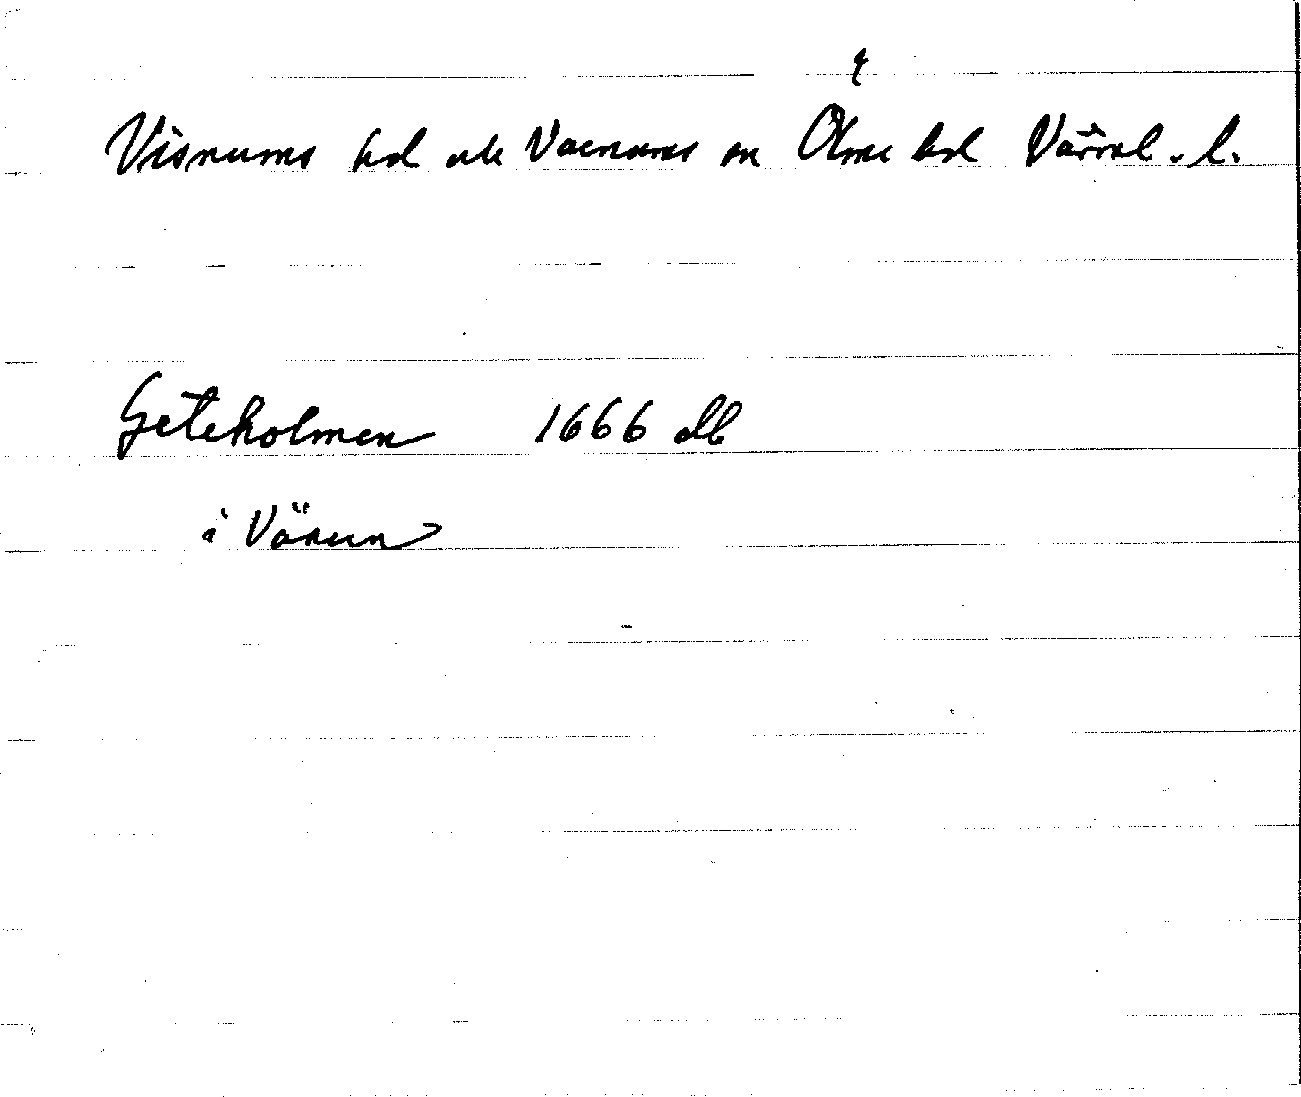 Visnums hd och Vaenums sn Ölme hd Värml. l.
Geteholmen 1666 db
i Vänern